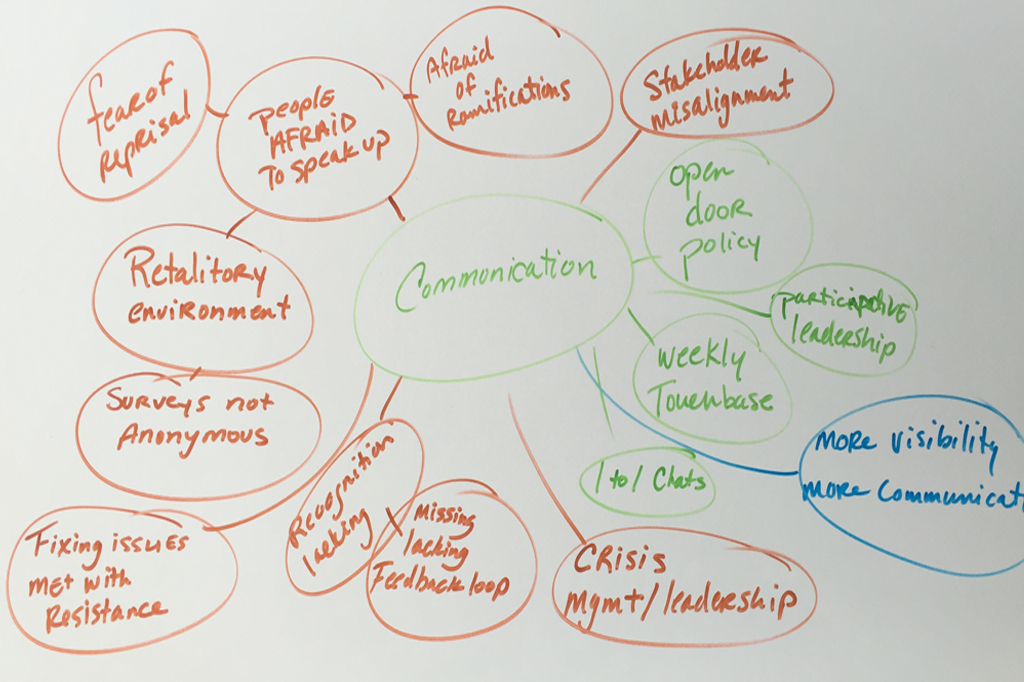 fear of
reprisal
PEOPLE
AFRAID
To speak up
Afraid
of
Ramifications
Stakeholder
misalignment
open
door
policy
Communication
Retalitory
environment
participative
leadership
weekly
Touchbase
Surveys not
Anonymous
1 to 1 Chats
more visibility
more communicati
Recognition
lacking
Missing
lacking
Feedback loop
Fixing issues
met with
Resistance
CRisis
mgmt/leadership